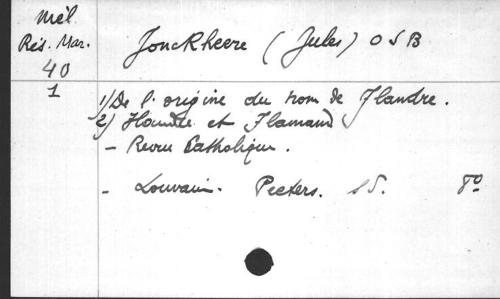 Mél.
Rés. Mar.
40
1
Jonckheere (Jules) O S B
1) De l'origine du nom de Flandre.
2) Flandre et Flamand
- Revue Catholique.
- Louvain. Peeters. s d. 8°